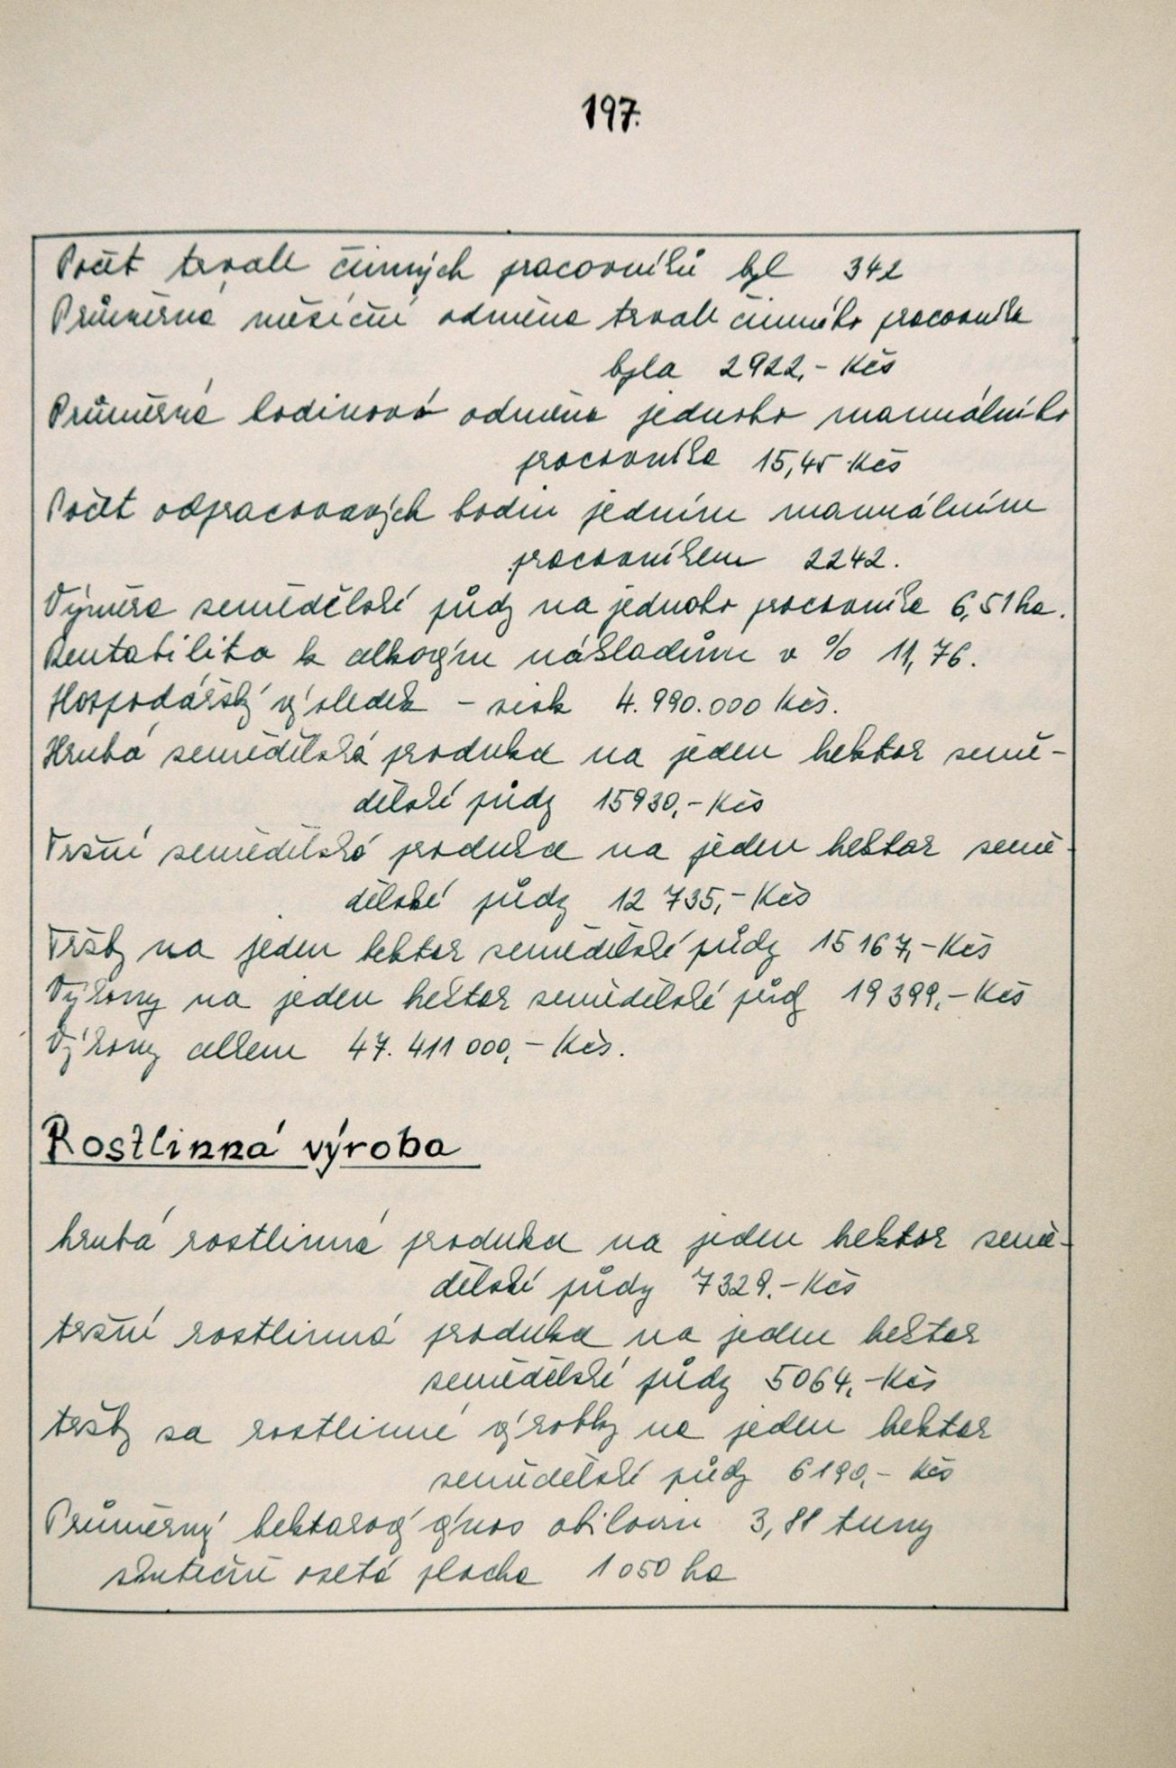 197.
Počet trvale činných pracovníků byl 342
Průměrná měsíční odměna trvale činného pracovníka
byla 2922,- Kčs
Průměrná hodinová odměna jednoho manuálního
pracovníka 15,45 Kčs
Počet odpracovaných hodin jedním manuálním
pracovníkem 2242.
Výměra zemědělské půdy na jednoho pracovníka 6,51 ha.
Rentabilita k celkovým nákladům v % 11,76.
Hospodářský výsledek - zisk 4.990.000 Kčs.
Hrubá zemědělská produkce na jeden hektar země-
dělské půdy 15930,- Kčs
Tržní zemědělská produkce na jeden hektar země-
dělské půdy 12 735,- Kčs
Tržby na jeden hektar zemědělské půdy 15 167,- Kčs
Výkony na jeden hektar zemědělské půdy 19 399,- Kčs
Výkony celkem 47. 411 000,- Kčs.
Rostlinná výroba
hrubá rostlinná produkce na jeden hektar země-
dělské půdy 7329.- Kčs
tržní rostlinná produkce na jeden hektar
zemědělské půdy 5064,- Kčs
tržby za rostlinné výrobky na jeden hektar
zemědělské půdy 6190,- Kčs
Průměrný hektarový výnos obilovin 3,81 tuny
skutečně osetá plocha 1 050 ha